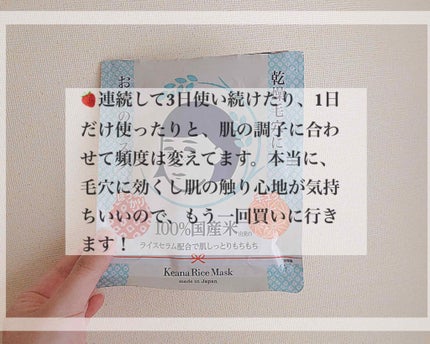 🍓連続して3日使い続けたり、1日
だけ使ったりと、肌の調子に合わ
せて頻度は変えてます。本当に、
毛穴に効くし肌の触り心地が気持
ちいいので、もう一回買いに行き
ます！
100%国産米
ライスセラム配合で肌しっとりもちもち
Keana Rice Mask
made in Japan